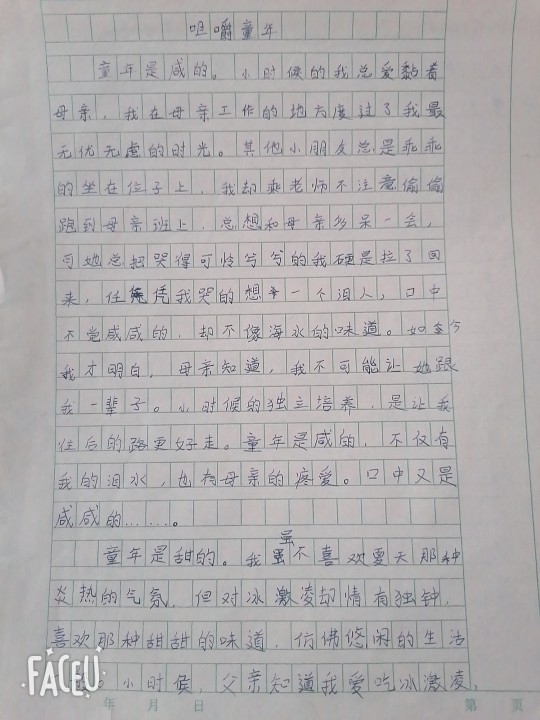 咀嚼童年
童年是咸的。小时候的我总爱黏着
母亲，我在母亲工作的地方度过了我最
无忧无虑的时光。其他小朋友总是乖乖
的坐在位子上，我却乘老师不注意偷偷
跑到母亲班上，总想和母亲多呆一会，
可她总把哭得可怜兮兮的我硬是拉了回
来，任凭我哭的想一个泪人，口中
不觉咸咸的，却不像海水的味道。如今
我才明白，母亲知道，我不可能让她跟
我一辈子。小时候的独立培养，是让我
往后的路更好走。童年是咸的，不仅有
我的泪水，也有母亲的疼爱。口中又是
咸咸的……。
童年是甜的。我虽不喜欢夏天那种
炎热的气氛，但对冰激凌却情有独钟，
喜欢那种甜甜的味道，仿佛悠闲的生活
小时候，父亲知道我爱吃冰激凌，
FACEU
年 月 日 第 页